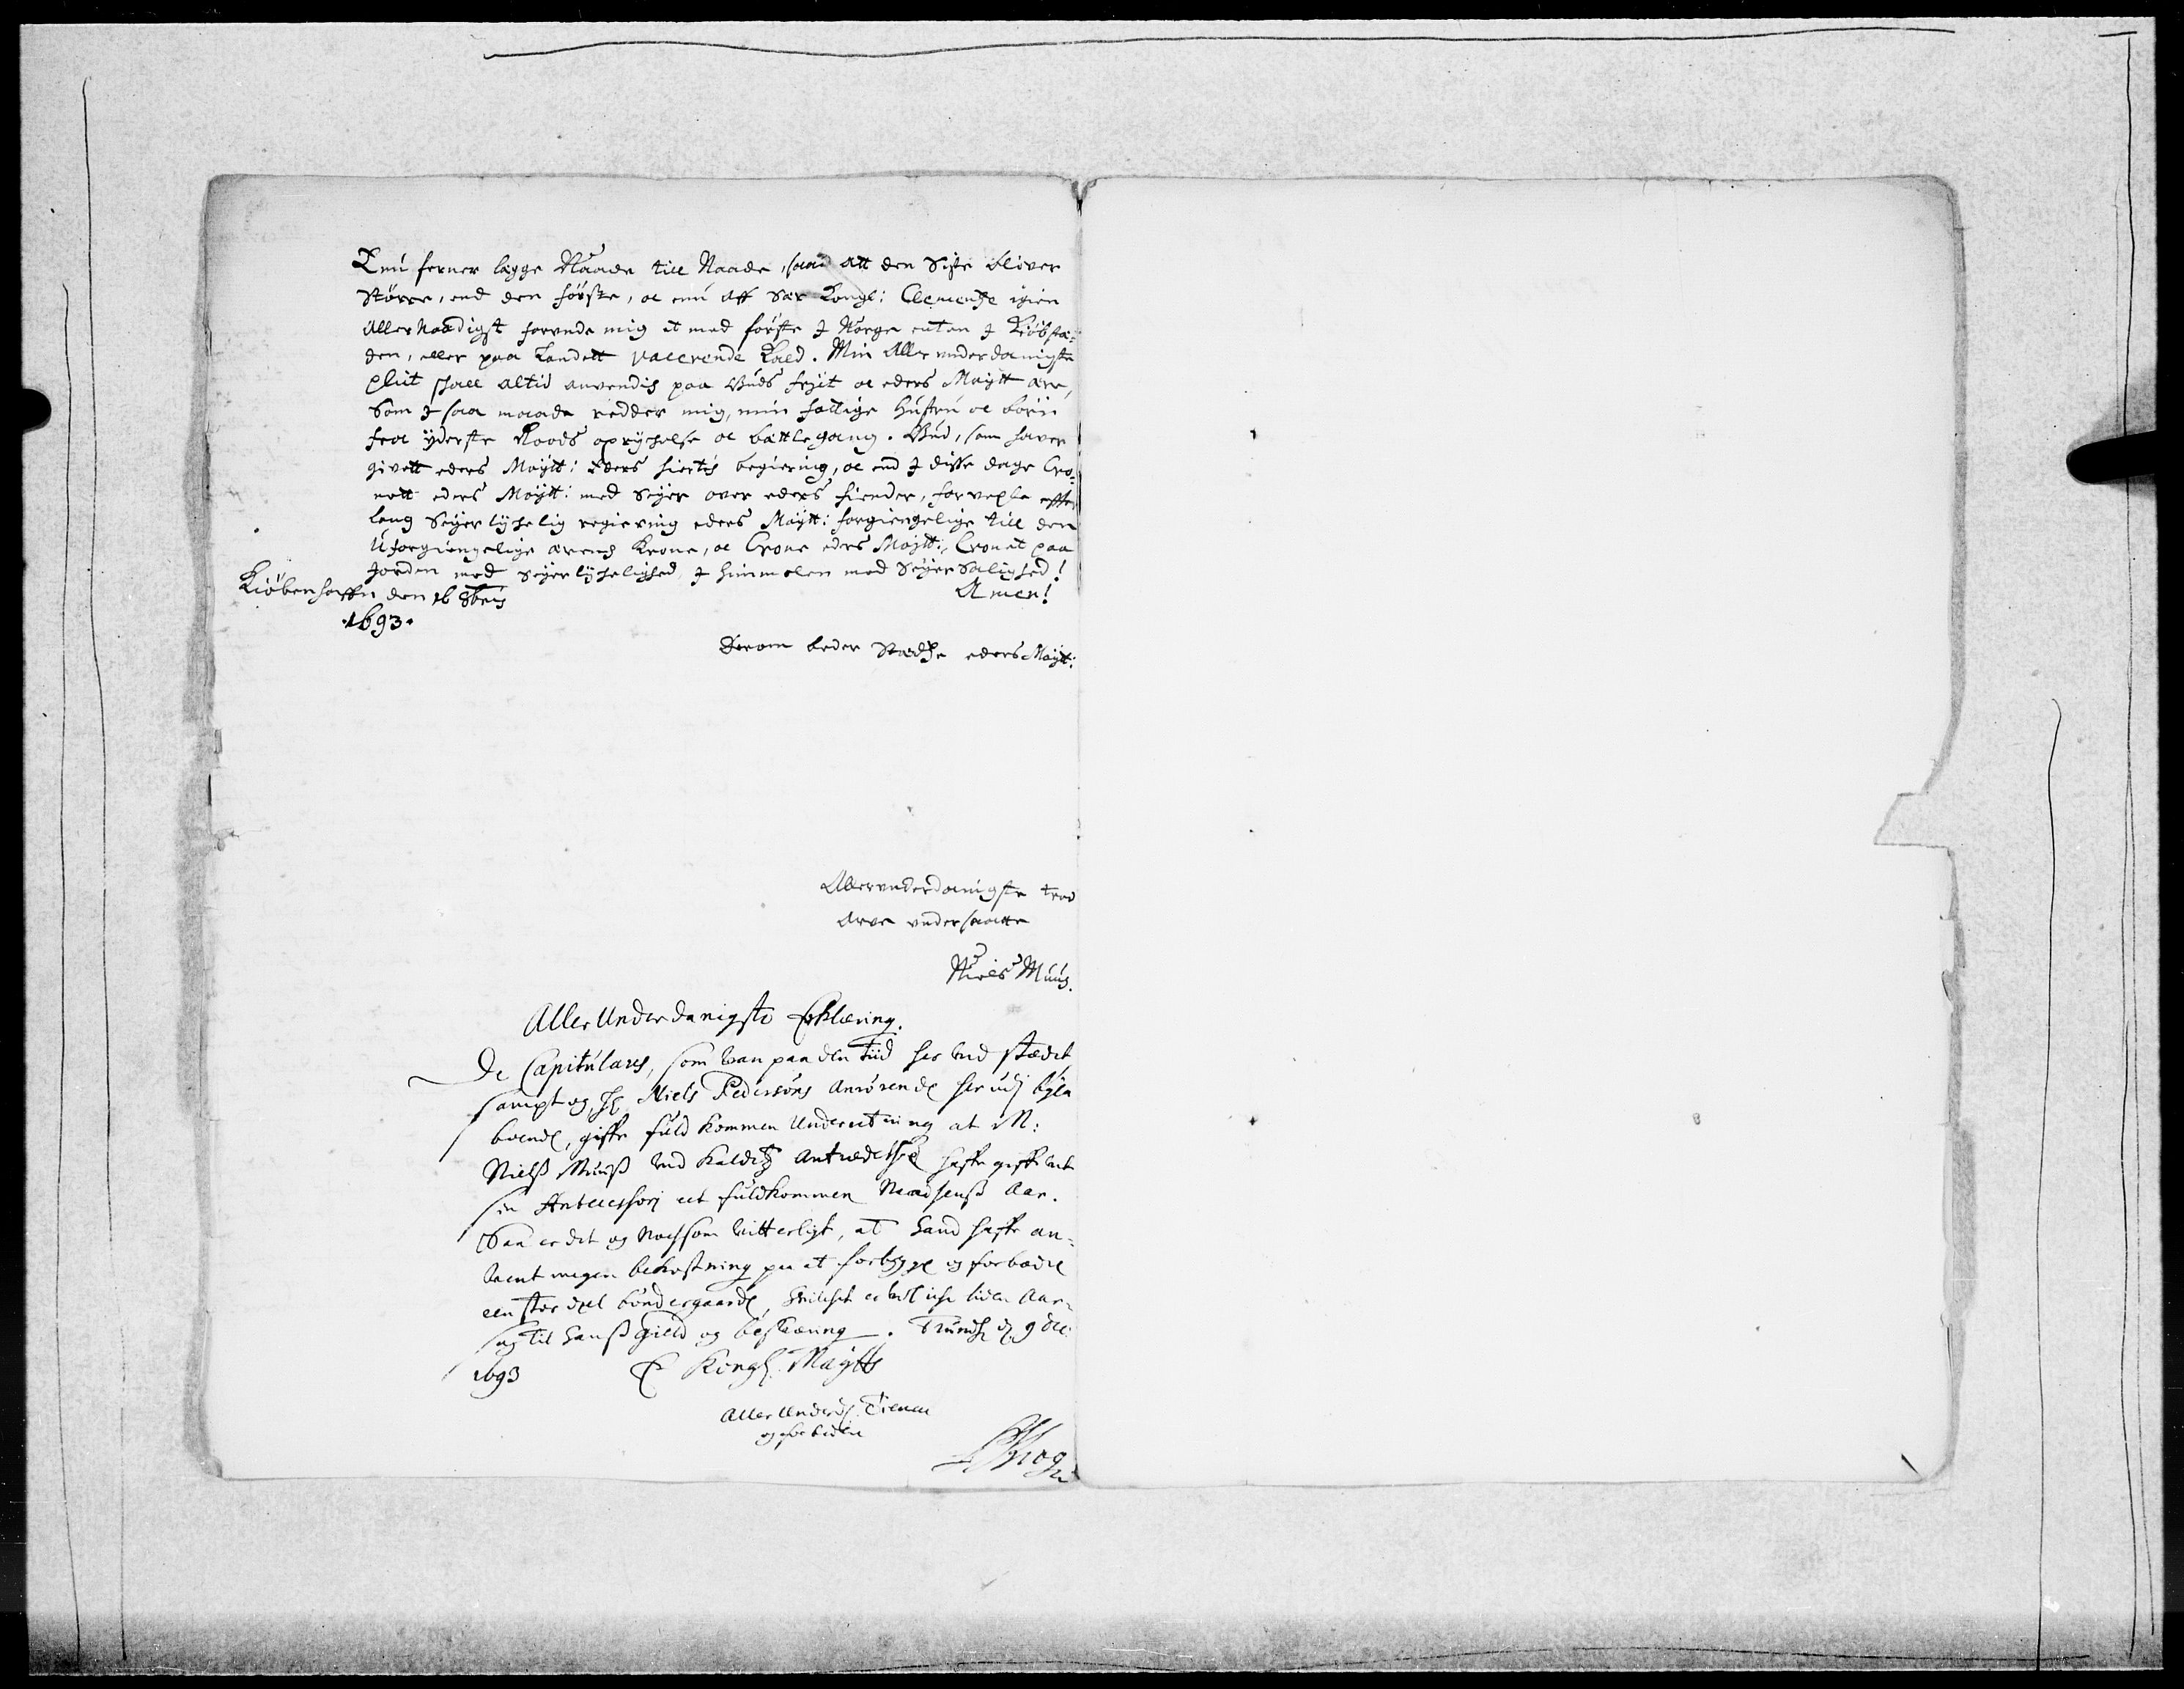 Enú ferner lægge Naade till Naade, saa att den Siste bliver
Större, end den förste, oc enú aff Sær Kongl: Clementze igien
Allernaadigst forunde mig et med förste J Norge enten J Kiöbstæ¬
den, eller paa Landett vacerende Kald. Min Allerunderdanigste
Pliit shall altid anvendis paa Guds frygt oc eders Maytt ære,
Som J saa maade redder mig, min fattige Hústrú oc börn
fra yderste Noods oc bættlegang. Gud, som haver
givett eders Maytt: Eders hiertis begiering, oc end J disse dage Cro¬
nett eders Maytt: med Seyer over eders fiender, forvexle effter
lang Seyer lychelig regiering eders Maytt: forgiengelige till den
Uforgiengelige ærens Krone, oc Crone eders Maytt: Cronet paa
Jorden med Seyer lychelighed J himmelen med Seyer Salighed!
Amen!
Kiöbenhaffn den 16 8bris
1693.
Derom beder Stædtze eders Maytt:
Allerunderdanigste troe
Arve undersaatte
Niels Muus.
Aller Underdanigste Erklæring.
De Capitulares, som var paa den Tiid her ved stædet
sampt og Hr Niels Pedersöns Anrörende herudj Byen
boende, giffr fuldkommen Underretning at M:
Nielß Muuß ved Kaldetz Antrædelse haffr giffvet
sin Antecessori et fuldkommen Naadsenß Aar.
Saa er det og Nochsom vitterligt, at hand haffr an¬
vent megen bekostning paa at forbygge og forbædre
een stor deel böndergaarde, hvilchet er iche liden Aar¬
sag til hanß Gield og besværing. Trundh d. 9 Dec:
1693
E Kongl. Maytts
Aller Underd. Tienere
og forbeder